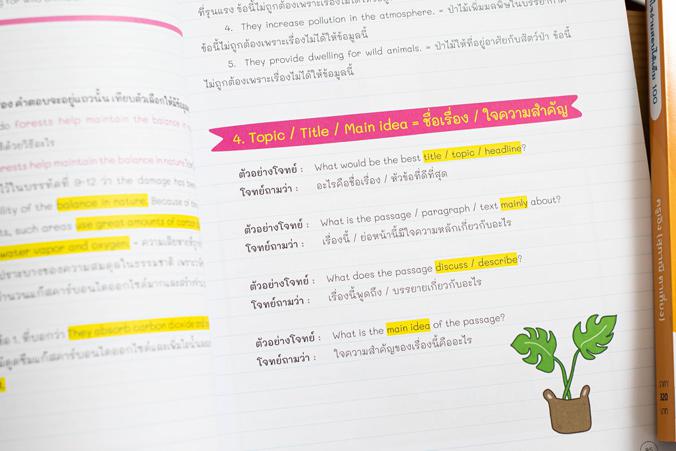 ที่รุนแรง ข้อนี้ไม่ถูกต้องเพราะเรื่องไม่ได้ให้ข้อมูลนี้
4. They increase pollution in the atmosphere. = ป่าไม้เพิ่มมลพิษในบรรยากาศ
ข้อนี้ไม่ถูกต้องเพราะเรื่องไม่ได้ให้ข้อมูลนี้
5. They provide dwelling for wild animals. = ป่าไม้ให้ที่อยู่อาศัยกับสัตว์ป่า ข้อนี้
ไม่ถูกต้องเพราะเรื่องไม่ได้ให้ข้อมูลนี้
4. Topic / Title / Main idea = ชื่อเรื่อง / ใจความสำคัญ
ตัวอย่างโจทย์ : What would be the best title / topic / headline?
โจทย์ถามว่า : อะไรคือชื่อเรื่อง / หัวข้อที่ดีที่สุด
ตัวอย่างโจทย์ : What is the passage / paragraph / text mainly about?
โจทย์ถามว่า : เรื่องนี้ / ย่อหน้านี้มีใจความหลักเกี่ยวกับอะไร
ตัวอย่างโจทย์ : What does the passage discuss / describe?
โจทย์ถามว่า : เรื่องนี้พูดถึง / บรรยายเกี่ยวกับอะไร
ตัวอย่างโจทย์ : What is the main idea of the passage?
โจทย์ถามว่า : ใจความสำคัญของเรื่องนี้คืออะไร
คำตอบจะอยู่แถวนั้น เทียบตัวเลือกให้มีข้อมูล
do forests help maintain the balance in
ด้วยวิธีอะไร
forests help maintain the balance in nature
ไว้ในบรรทัดที่ 9-12 ว่า the damage has been
ility of the balance in nature. Because of
ts, such areas use great amounts of carbon
water vapor and oxygen. = ความเสียหาย
ประบางของความสมดุลในธรรมชาติ เพราะ
จำนวนแก๊สคาร์บอนไดออกไซด์มากและสร้าง
ข้อ 1. ที่บอกว่า They absorb carbon dioxide and
ราคา
320
บาท